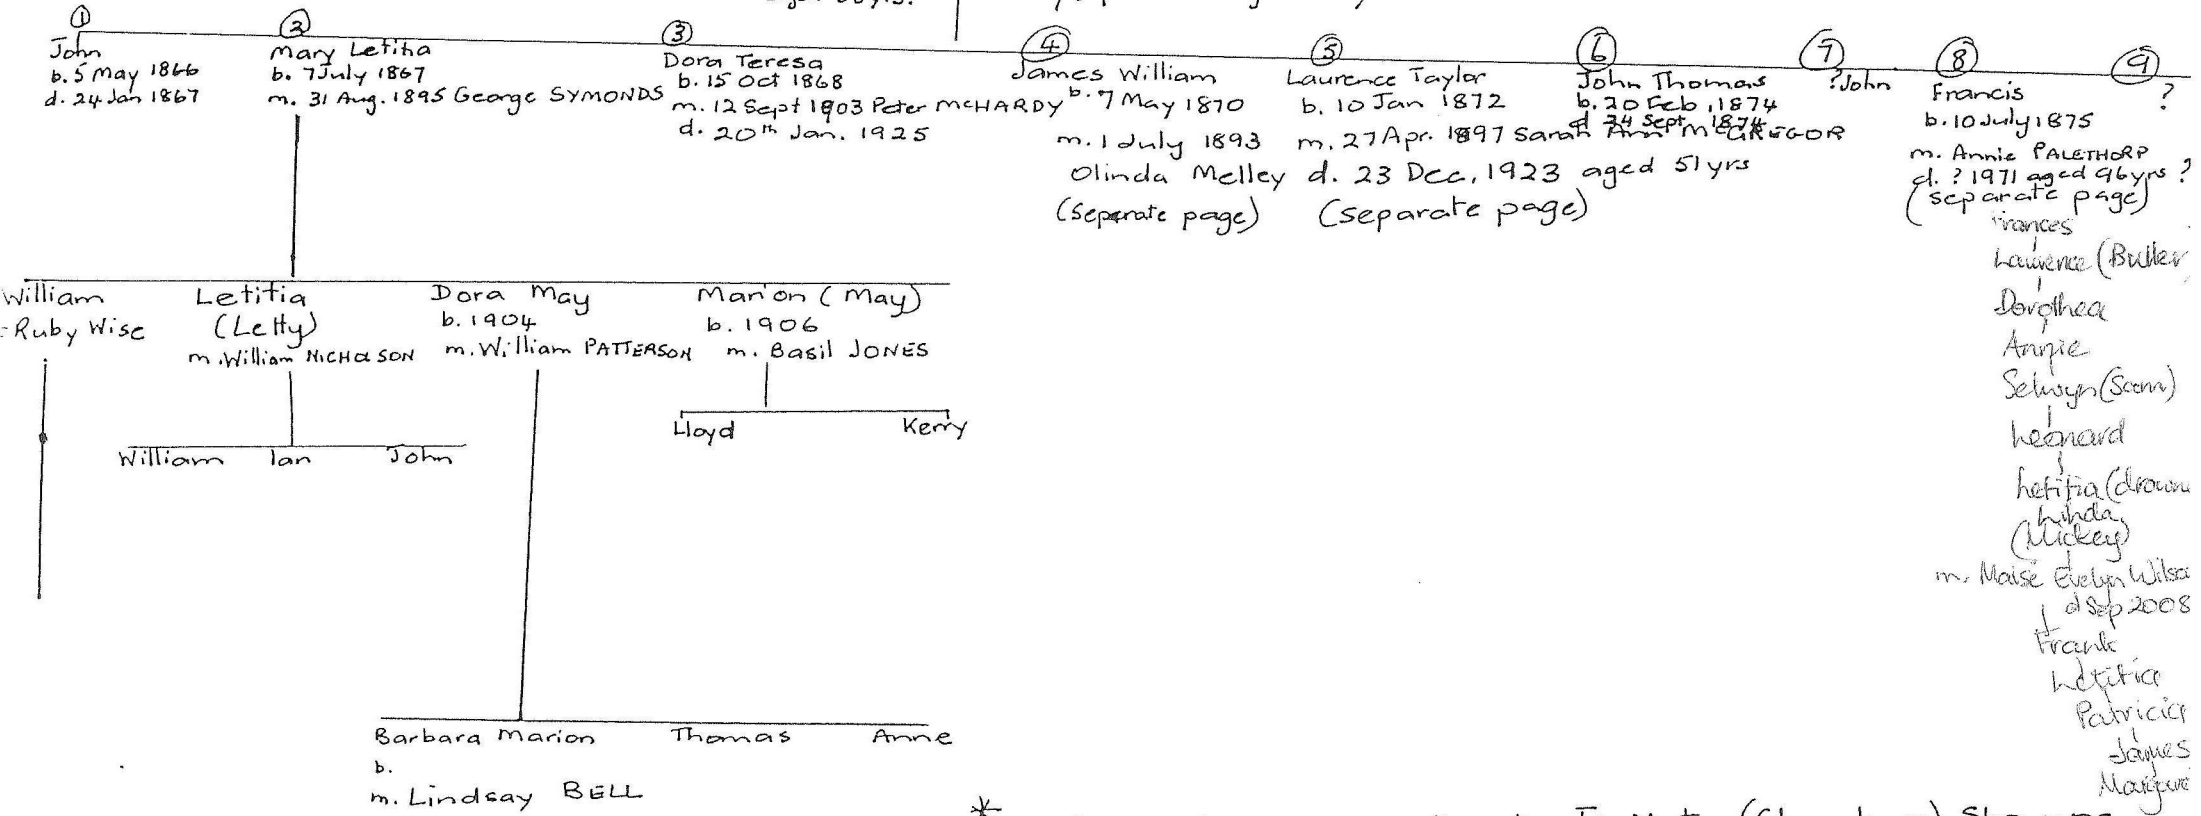 ①
John
b. 5 May 1866
d. 24 Jan 1867
②
Mary Letitia
b. 7 July 1867
m. 31 Aug. 1895 George SYMONDS
③
Dora Teresa
b. 15 Oct 1868
m. 12 Sept 1903 Peter McHARDY
d. 20th Jan. 1925
④
James William
b. 7 May 1870
m. 1 July 1893
Olinda Melley
(Seperate page)
⑤
Laurence Taylor
b. 10 Jan 1872
m. 27 Apr. 1897 Sarah Ann McGREGOR
d. 23 Dec, 1923 aged 51 yrs
(separate page)
⑥
John Thomas
b. 20 Feb, 1874
d 24 Sept, 1874
⑦
?John
⑧
Francis
b. 10 July 1875
m. Annie PALETHORP
d. ? 1971 aged 96 yrs ?
(separate page)
⑨
?
Frances
Laurence (Buller
Dorothea
Annie
Selwyn
Leonard
Letitia (drown
Linda
(Mickey)
m. Maise Evelyn Wilso
d Sep 2008
Frank
Letitia
Patricia
James
Margare
William
Ruby Wise
Letitia
(Letty)
m. William NICHOLSON
Dora May
b. 1904
m. William PATTERSON
Marion (May)
b. 1906
m. Basil JONES
William Ian John
Lloyd Kerry
Barbara Marion Thomas Anne
b.
m. Lindsay BELL
*